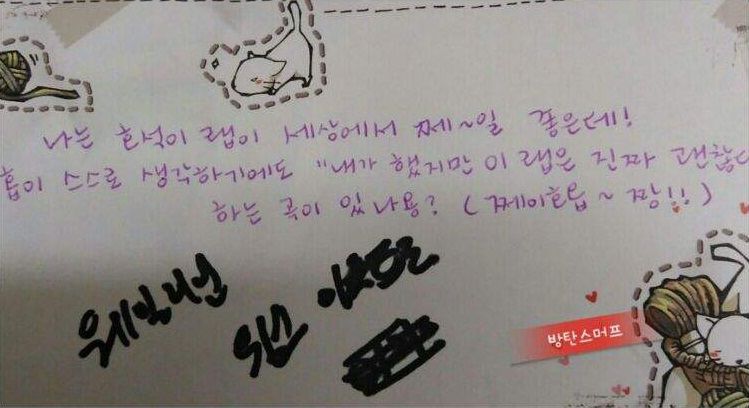 나는 호석이 랩이 세상에서 쩨~일 좋은데!
홉이 스스로 생각하기에도 "내가 했지만 이 랩은 진짜 괜찮다
하는 곡이 있나용? (쩨이홉 ~ 짱!!)
방탄스머프